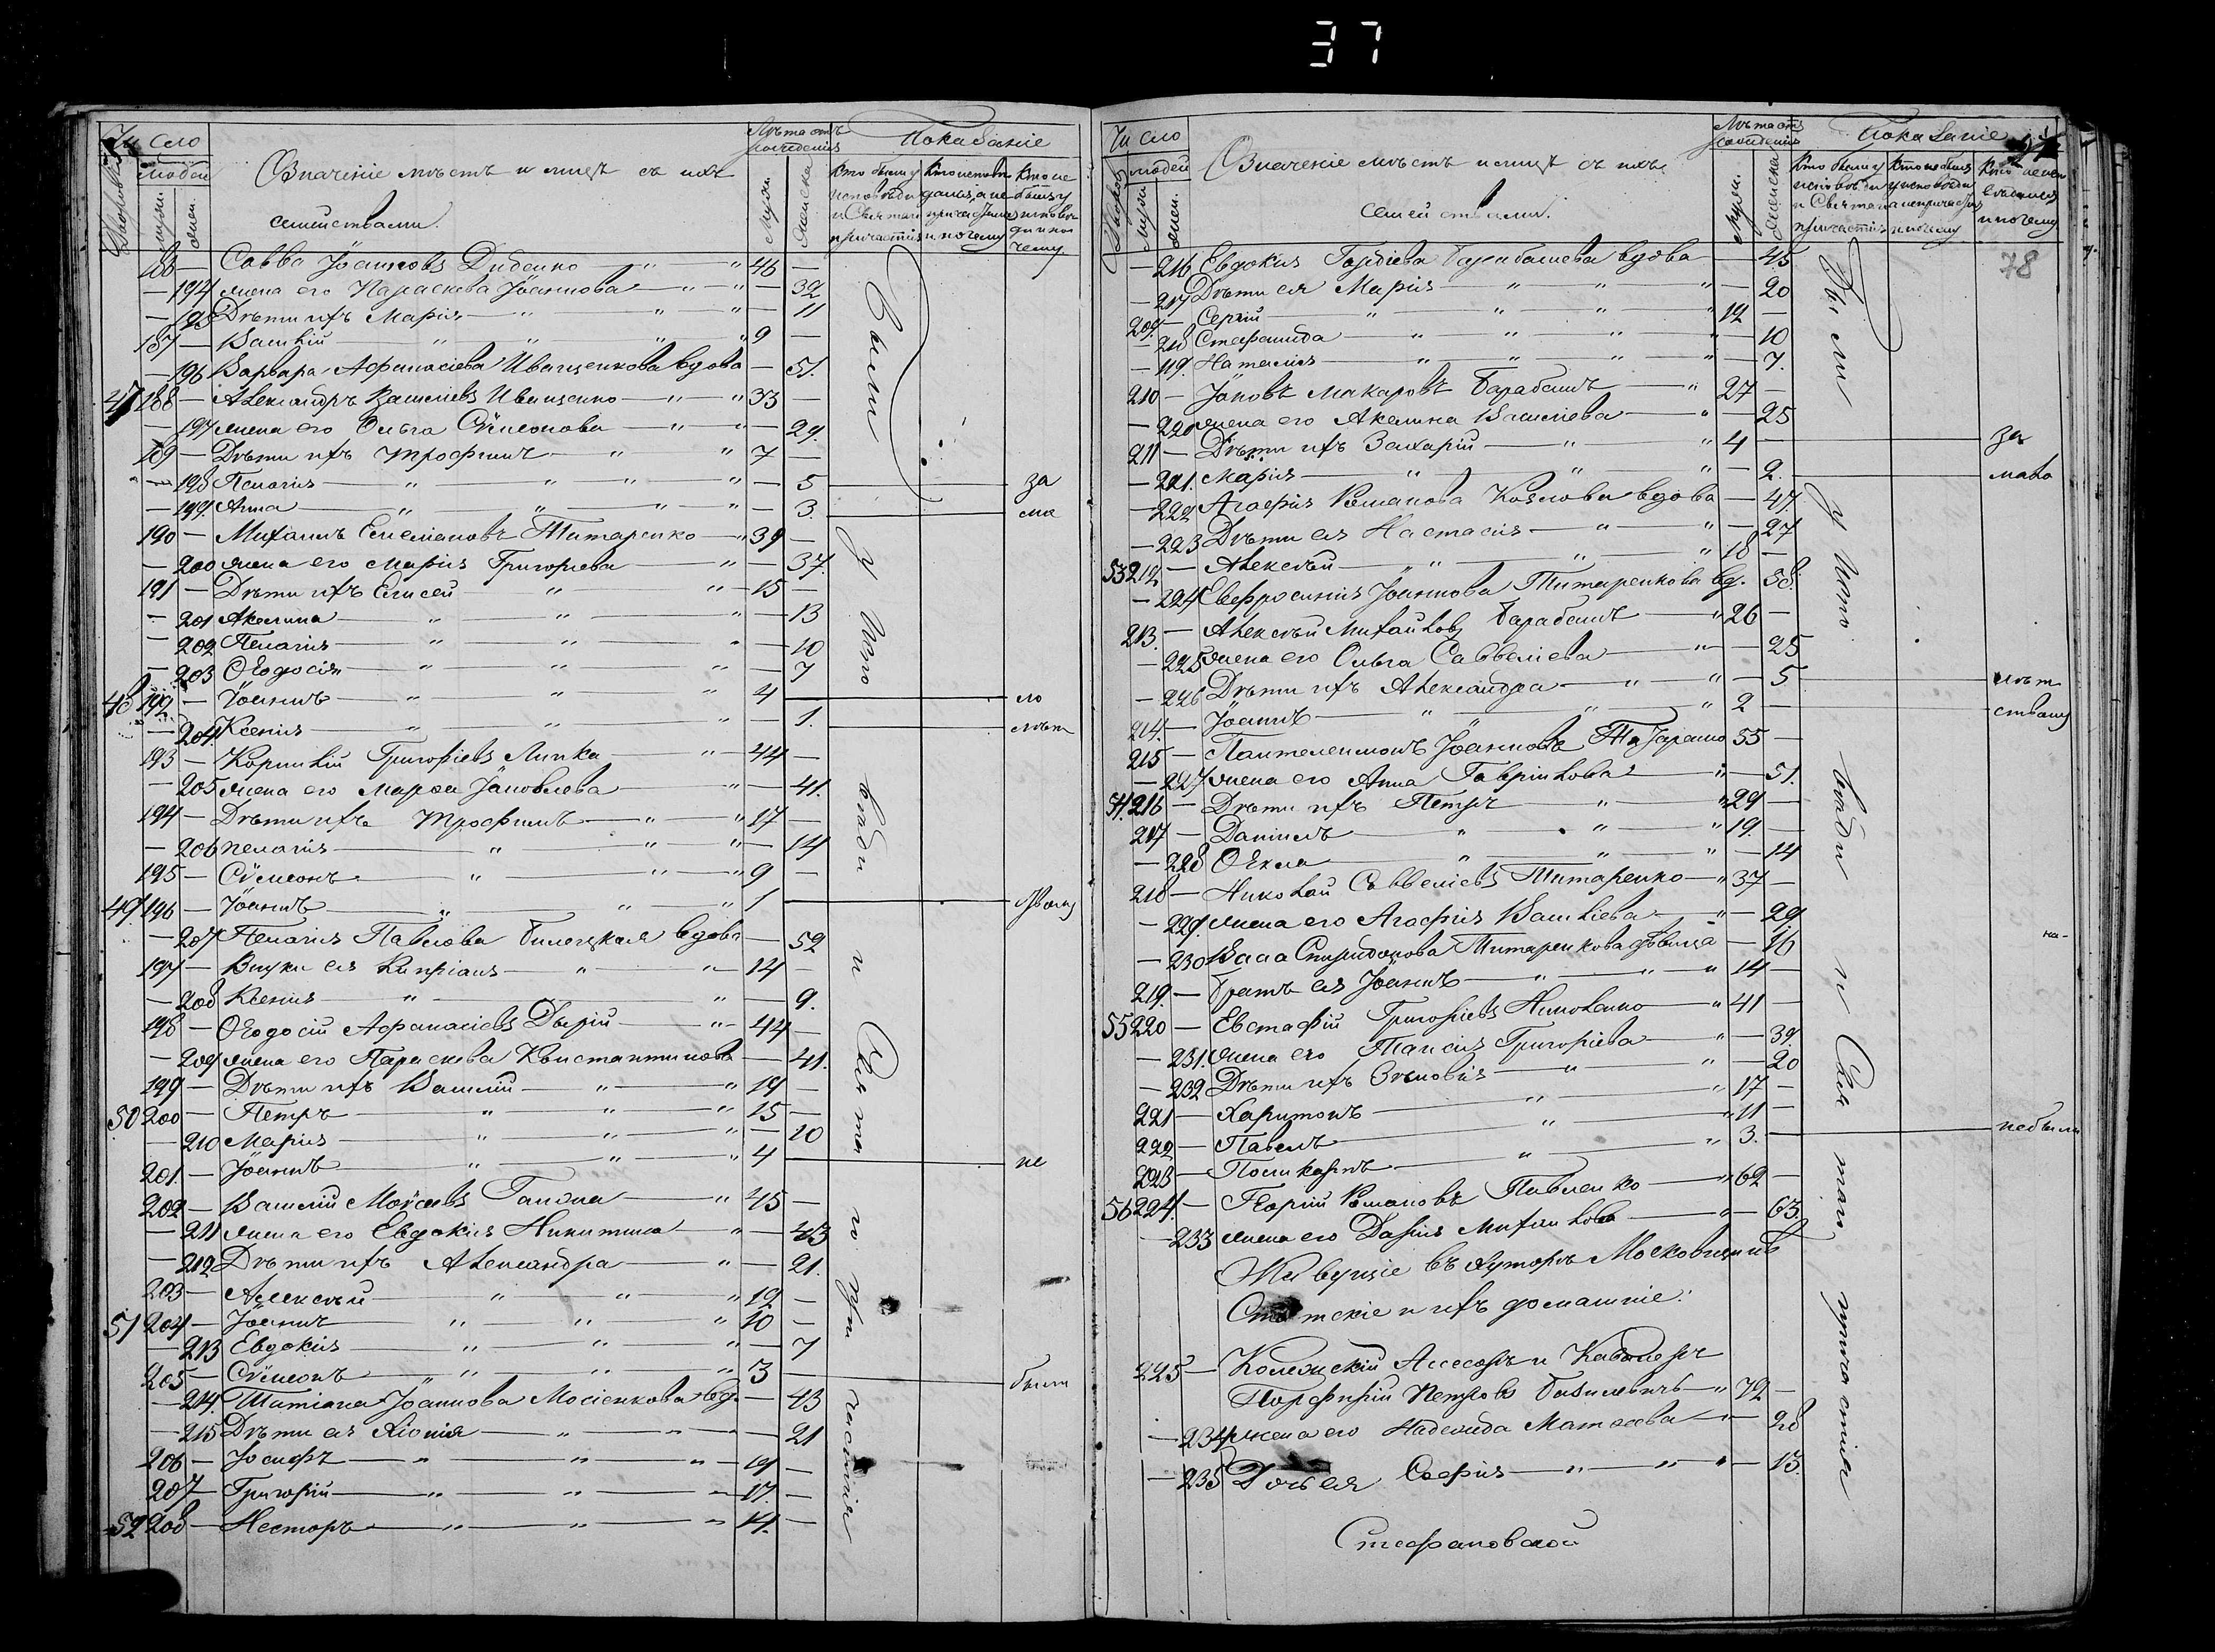 37
Число
Людей
Дворовъ
мужи.
жен.
Означеніе мѣстъ и лицъ съ ихъ
семействами.
Лѣта отъ рожденія
Мужи.
Женска
Показаніе
Кто были у исповѣди и Святаго причастія
Кто исповѣдались, а не причастились и почему
Кто не былъ у исповѣди и почему
186 — Савва Іоанновъ Диденко — " — " 46 —
— 194 жена его Параскева Іоаннова — " — " — 32
— 195 Дѣти ихъ Марія — " — " — " — 11
187 — Василій — " — " — " 9 —
— 196 Варвара Афанасіева Иващенкова вдова — 51.
47 188 — Александръ Василіевъ Иващенко — " — " 33 —
— 197 жена его Ольга Сѵмеонова — " — " — 29.
189 — Дѣти ихъ Трофимъ — " — " 7 —
— 198 Пелагія — " — " — " — " — 5 — за
— 199. Анна — " — " — " — " — 3. — ма
190 — Михаилъ Емеліановъ Титаренко — " 39 —
— 200 жена его Марія Григоріева — " — 37.
191 — Дѣти ихъ Елисей — " — " — 15 —
— 201 Акелина — " — " — " — 13
— 202 Пелагія — " — " — " — 10
— 203 Ѳеодосія — " — " — " — 7
48 192 — Іоаннъ — " — " — " 4 — ло
— 204. Ксенія — " — " — " — 1. — лѣт
193 — Корнилій Григоріевъ Липка — " — 44 —
— 205 жена его Марѳа Іаковлева — " — 41.
194 — Дѣти ихъ Трофимъ — " — " 17 —
— 206 Пелагія — " — " — " — 14
195 — Сѵмеонъ — " — " — " 9 —
49 196 — Іоаннъ — " — " — " 1 —
— 207 Пелагія Павлова Билецкая вдова — 52
197 — Внуки ея Кипріанъ — " — " — 14 —
— 208 Ксенія — " — " — 9.
198 — Ѳеодосій Афанасіевъ — " — 44 —
— 209 жена его Параскева Константинова — 41.
199 — Дѣти ихъ Василій — " — " 19 —
50 200 — Петръ — " — " — " 15 —
— 210 Марія — " — " — " — 10
201. — Іоаннъ — " — " — " 4 — не
202 — Василій Моѵсеевъ Гапона — " 45 —
— 211 жена его Евдокія Никитина — " — 43
— 212 Дѣти ихъ Александра — " — 21.
203 — Алексѣй — " — " — " 12 —
51 204 — Іоаннъ — " — " — " 10 —
— 213 Евдокія — " — " — " — 7
205 — Сѵмеонъ — " — " — " 3 — были
— 214. Татіана Іоаннова Мосіенкова вд. — 43
— 215 Дѣти ея Хіонія — " — " — 21
206 — Іосифъ — " — " — " — 19 —
207 — Григорій — " — " — " 17. —
52 208 — Несторъ — " — " — " 14. —
Были у исповѣди и Святаго причастія
Число
Людей
Дворов
Мужи
жен.
Означеніе мѣстъ и лицъ съ ихъ
семействами.
Лѣта отъ рожденія
Мужи.
Женска
Показаніе
78
— 216 Евдокія Гордіева Барабашева вдова — 45
— 217 Дѣти ея Марія — " — " — " — 20
209. — Сергій — " — " — " — " 12 —
— 218 Стефанида — " — " — " — 10
— 119. Наталія — " — " — " — 7.
210 — Іаковъ Макаровъ Барабашъ — " 27 —
— 220 жена его Акелина Василіева — " — 25
211 — Дѣти ихъ Захарій — " — " 4 — за
— 221. Марія — " — " — " — 2. — мало
— 222 Агафія Романова Козлова вдова — 47.
— 223 Дѣти ея Настасія — " — " — 27
53 212 — Алексѣй — " — " — " 18 —
— 224 Евфросинія Іоаннова Титаренкова вд. — 38.
213. — Алексѣй Михайловъ Барабашъ — " 26 —
— 225 жена его Ольга Савеліева — " — 25
— 226 Дѣти ихъ Александра — " — " — 5 — лѣт
214. — Іоаннъ — " — " — " 2 — ствомъ
215 — Пантелеимонъ Іоанновъ 55 —
— 227 жена его Анна Гавріилова — " — 51.
54. 216 — Дѣти ихъ Петръ — " — " 29 —
217 — Даніилъ — " — " — " 19. —
— 228 Ѳекла — " — " — " — 14
218 — Николай Савеліевъ Титаренко — " 37 —
— 229. жена его Агафія Василіева — " — 29
— 230 Васса Спиридонова Титаренкова дѣвица — 16
219. — Братъ ея Іоаннъ — " — " — " 14 —
55 220 — Евстафій Григоріевъ Николенко — " 41 —
— 231. жена его Таисія Григоріева — " — 39.
— 232 Дѣти ихъ Зѣновія — " — " — 20
221 — Харитонъ — " — " 17 —
222 — Павелъ — " — " 11 —
223 — Поликарпъ — " — " 3. — небыли
56 224. — Георгій Романовъ Павленко — " 62 —
— 233 жена его Дарія Михаилова — " — 63.
Живущіе въ хуторѣ Московщинѣ
Статскіе и ихъ домашніе:
225 — Коллежскій Ассесоръ и Кавалеръ
Порфирій Петровъ Базилевичъ — " 72 —
— 234 жена его Надежда Матѳеева — " — 28
— 235 Дочь ея Софія — " — " — " — 13.
Стефановской
Были у исповѣди и Святаго причастія